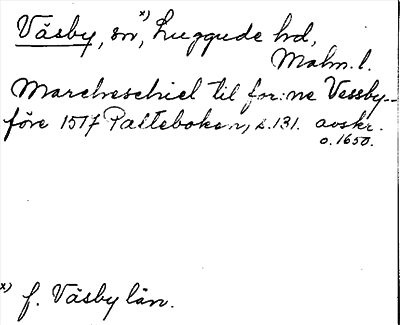 Väsby, sn, x) Luggude hd,
Malm. l.
Marcheschiel til for:ne Vessby--
före 1517 Palteboken, s. 131. avskr.
o. 1650.
x) f. Väsby län.